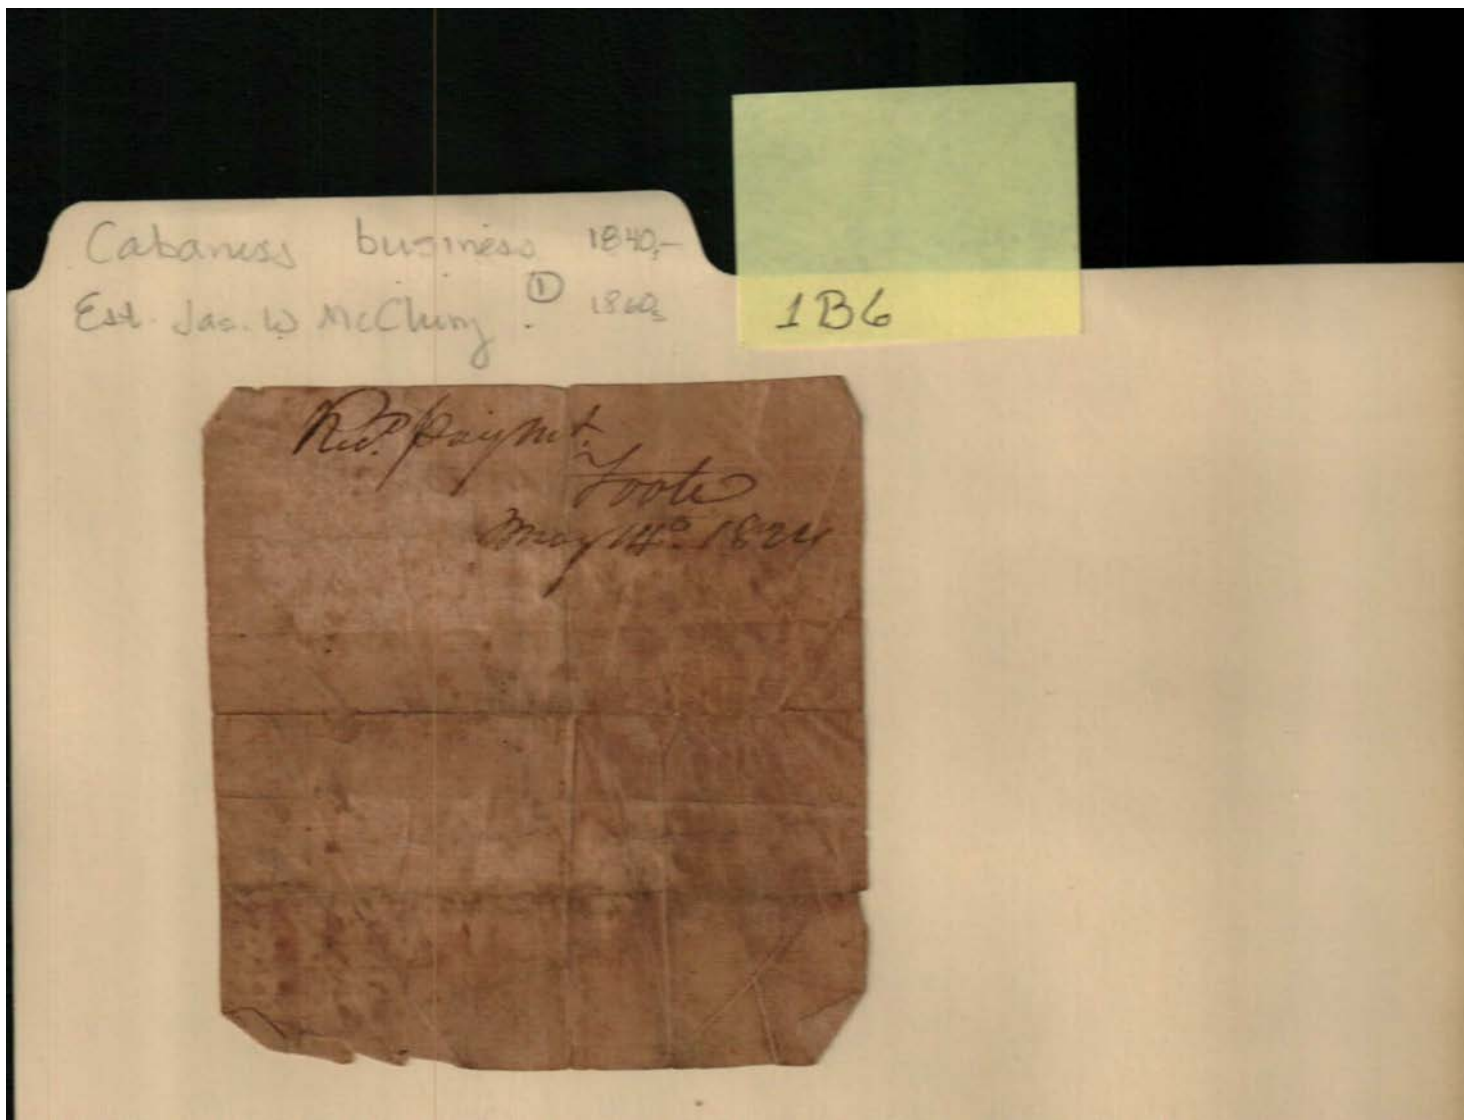 Cabaness business 1840,-
Est. Jas. W McClung ① 1860s
1B6
Recd. paymt.
Foote
May 14th. 1824